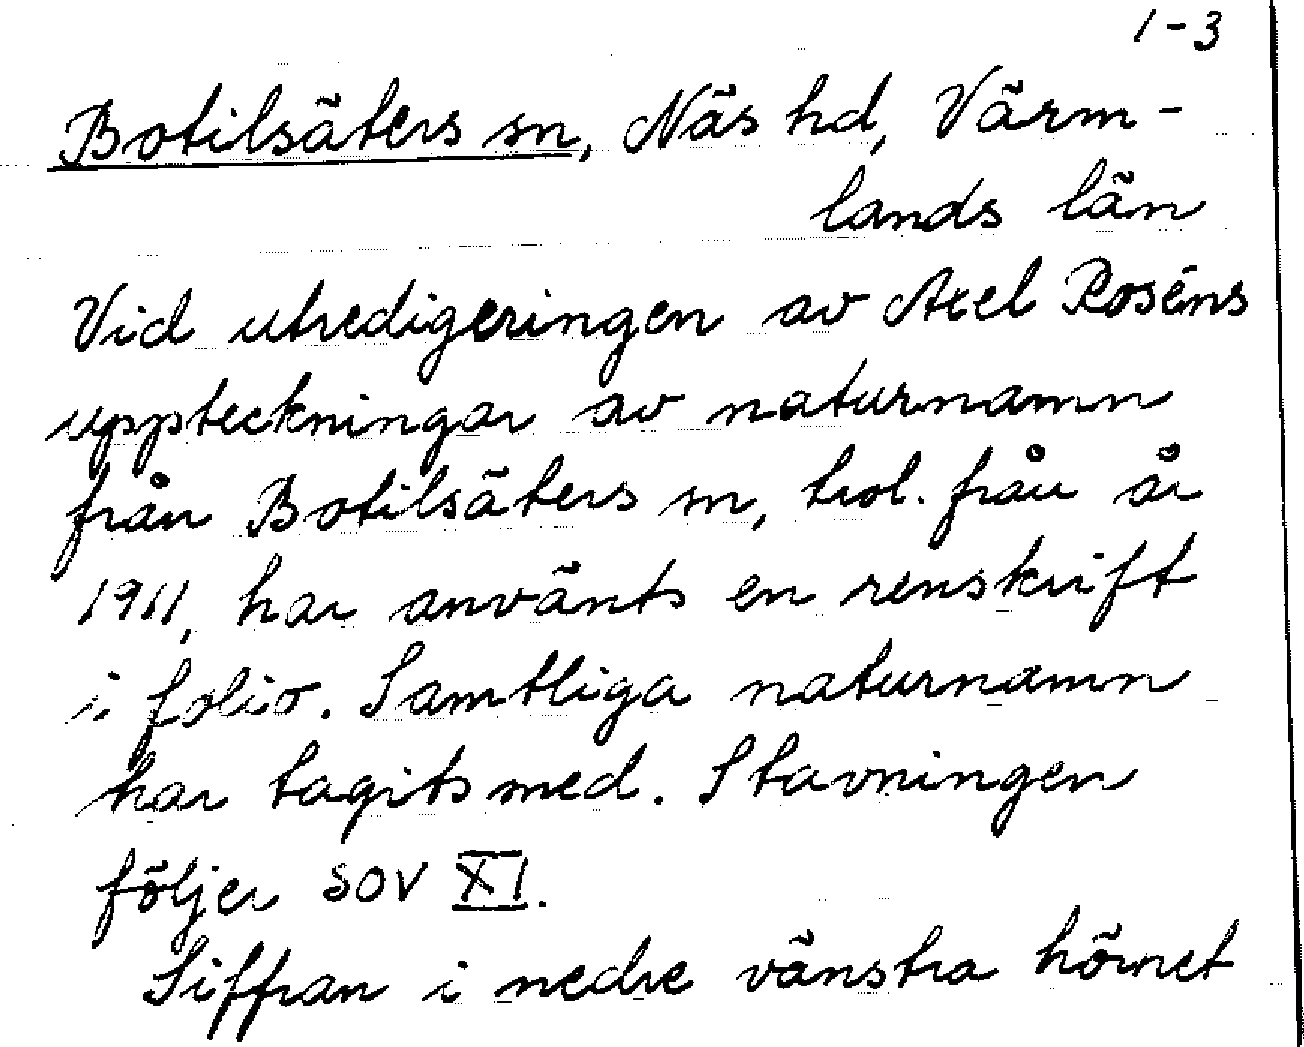 1-3
Botilsäters sn, Näs hd, Värm-
lands län
Vid utredigeringen av Axel Roséns
uppteckningar av naturnamn
från Botilsäters sn, trol. från år
1911, har använts en renskrift
i folio. Samtliga naturnamn
har tagits med. Stavningen
följer SOV XI.
Siffran i nedre vänstra hörnet